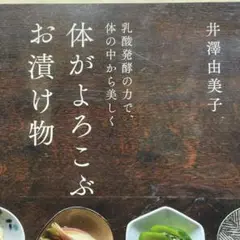 井澤由美子
乳酸発酵の力で、
体の中から美しく
体がよろこぶ
お漬け物